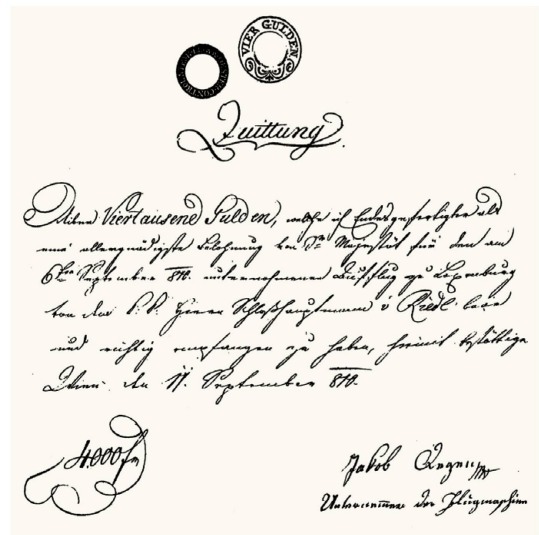 VIER GULDEN
Quittung.
Über Viertausend Gulden, welche ich Endesgefertigter als
eine allergnädigste Belohnung von Sr Majestät für den am
6ten September 810. unternommenen Luftflug zu Laxenburg
von dem k. k. Herrn Schloßhauptmann v Riedl baar
und richtig empfangen zu haben, hiemit bestättige
Wien den 11. September 810.
4000 f
Jakob Degen
Unternemmer der Flugmaschine